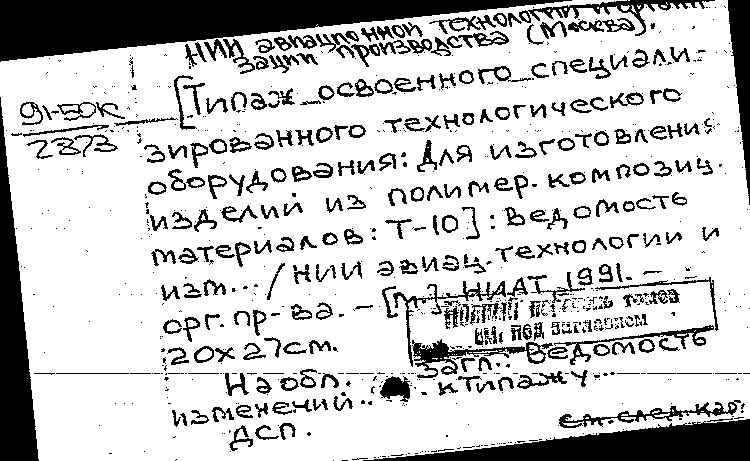 НИИ авиационной технологии и органи
зации производства (Москва).
[Типаж освоенного специали-
91-50К
2373
зированного технологического
оборудования: Для изготовления
изделий из полимер. композиц.
материалов: Т-10]: Ведомость
изм... / НИИ авиац. технологии и
орг. пр-ва. – [М.]: НИАТ, 1991. –
полный перечень томов
см. под заглавием
20х27см.
На обл. загл.: Ведомость
изменений... к Типажу...
ДСП.
см. след. кар.